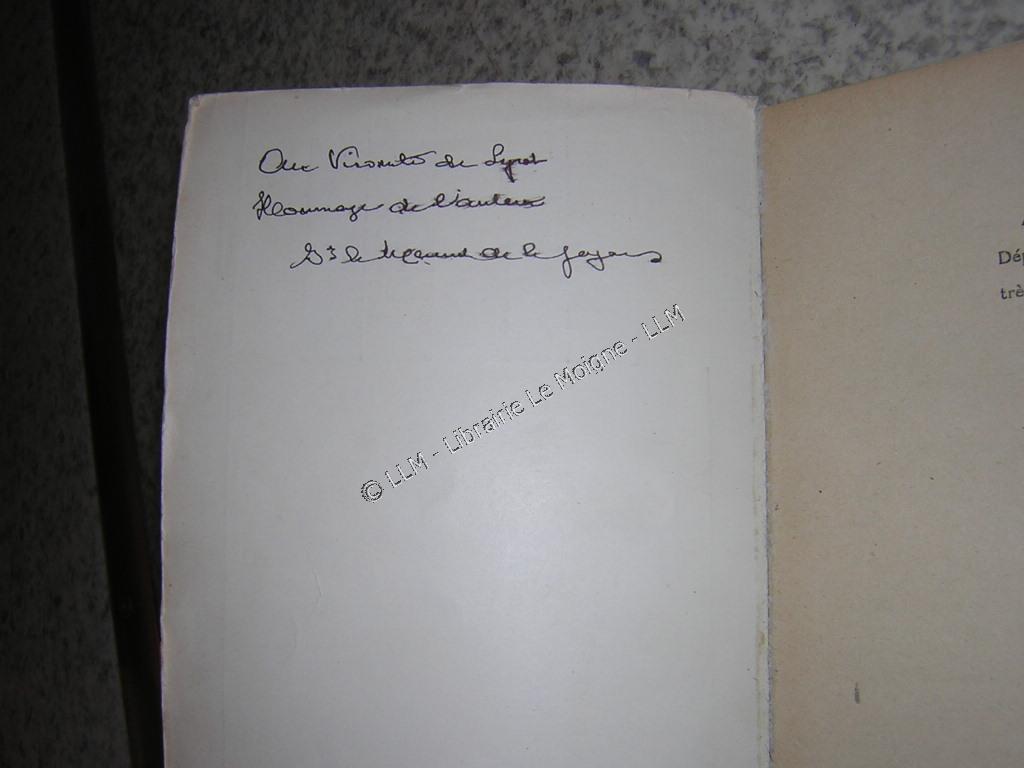 Au Vicomte de Lyrot
Hommage de l'auteur
de la
Dép
trè
© LLM - Librairie Le Moigne - LLM